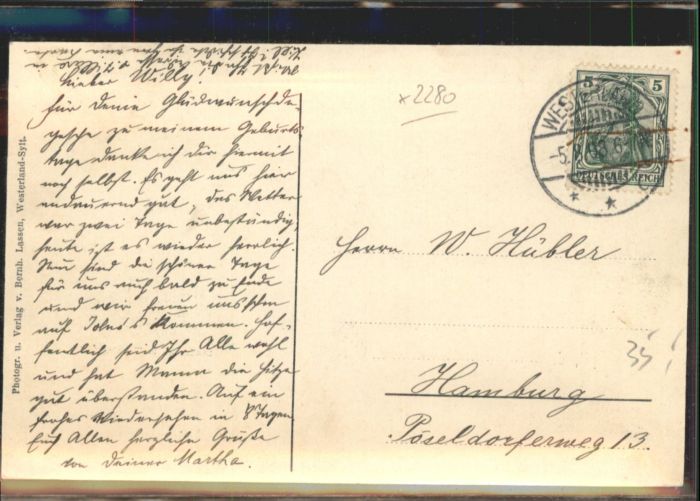 Lieber Willy!
Für Deine Glückwunschde-
pesche zu meinem Geburts-
tage danke ich dir hiermit
noch selbst. Es geht uns hier
andauernd gut, das Wetter
war zwei Tage unbeständig,
heute ist es wieder herrlich.
Nun sind die schönen Tage
für uns auch bald zu Ende
und wir freuen uns schon
auf Kommen. Hof-
fentlich seid Ihr Alle wohl
und hat Mama die Hitze
gut überstanden. Auf ein
frohes Wiedersehen in 8 Tagen
Euch Allen herzliche Grüße
von Deiner Martha.
Photogr. u. Verlag v. Bernh. Lassen, Westerland-Sylt.
x2280
5 5
WESTERLAND
DEUTSCHES REICH
Herrn W. Hübler
Hamburg
Pöseldorferweg 13.